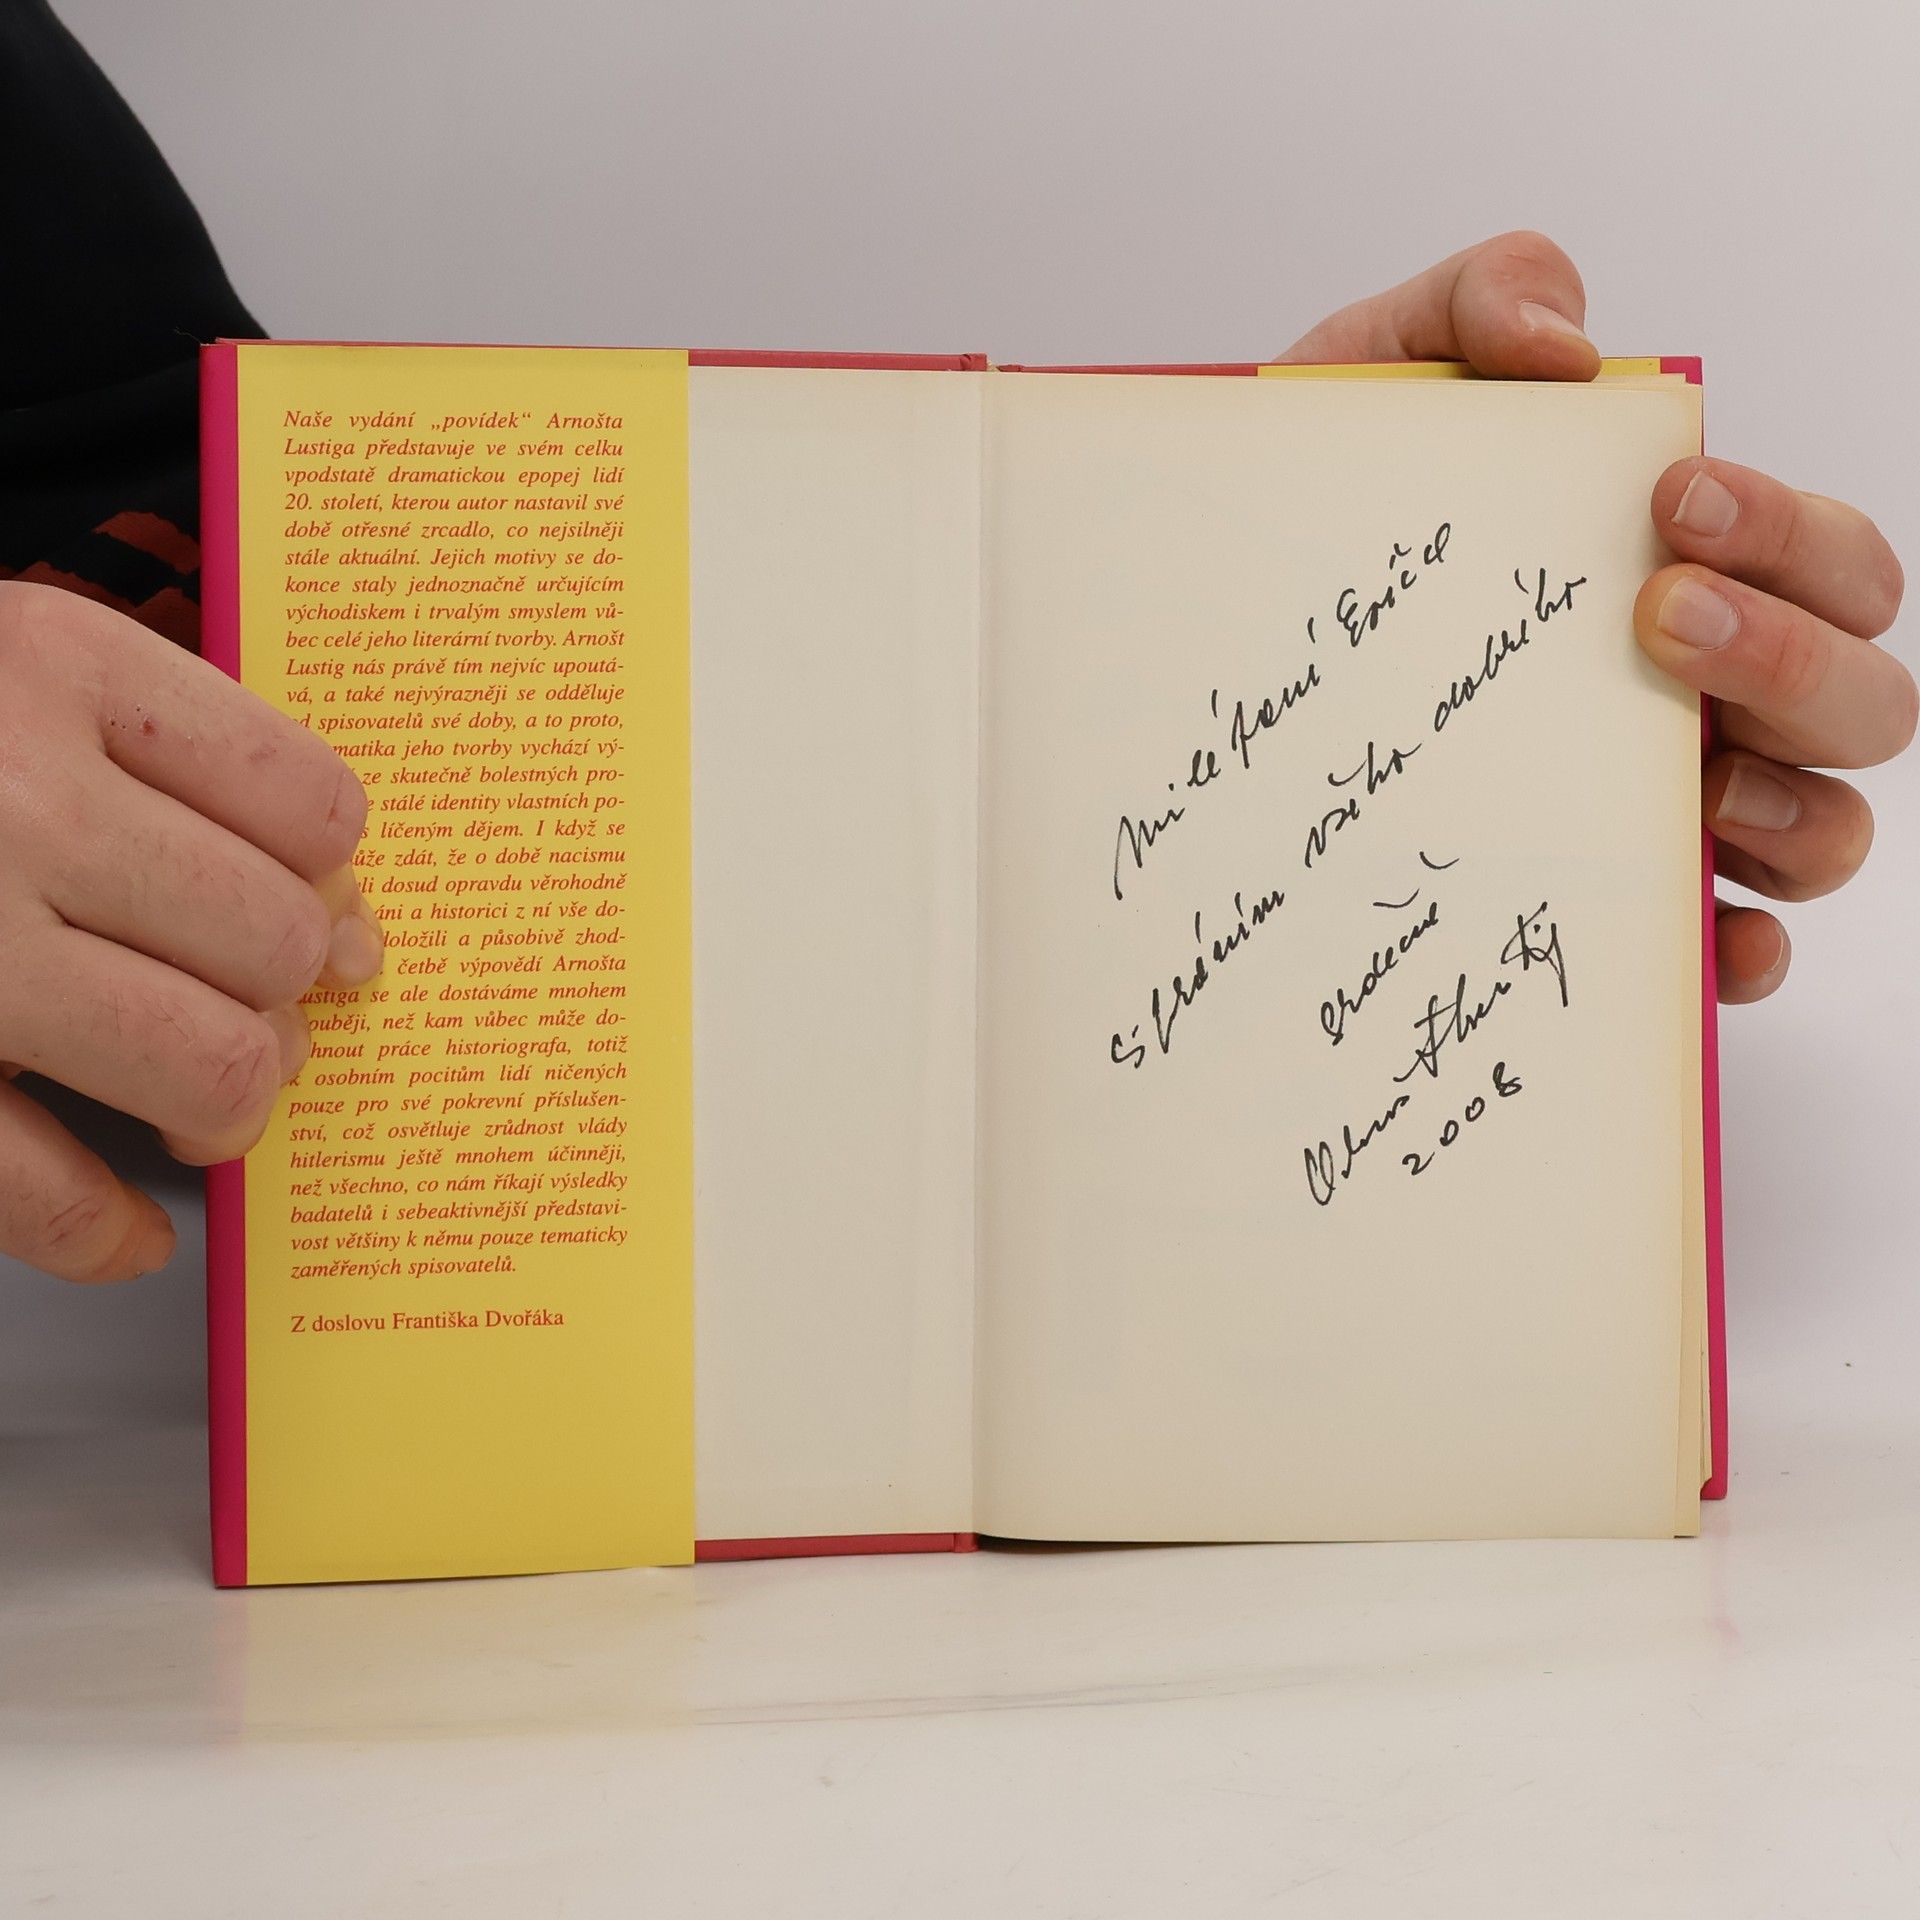 Naše vydání „povídek“ Arnošta
Lustiga představuje ve svém celku
vpodstatě dramatickou epopej lidí
20. století, kterou autor nastavil své
době otřesné zrcadlo, co nejsilněji
stále aktuální. Jejich motivy se do-
konce staly jednoznačně určujícím
východiskem i trvalým smyslem vů-
bec celé jeho literární tvorby. Arnošt
Lustig nás právě tím nejvíc upoutá-
vá, a také nejvýrazněji se odděluje
od spisovatelů své doby, a to proto,
matika jeho tvorby vychází vý-
ze skutečně bolestných pro-
stálé identity vlastních po-
s líčeným dějem. I když se
může zdát, že o době nacismu
dosud opravdu věrohodně
a historici z ní vše do-
doložili a působivě zhod-
četbě výpovědí Arnošta
Lustiga se ale dostáváme mnohem
hlouběji, než kam vůbec může do-
sáhnout práce historiografa, totiž
k osobním pocitům lidí ničených
pouze pro své pokrevní příslušen-
ství, což osvětluje zrůdnost vlády
hitlerismu ještě mnohem účinněji,
než všechno, co nám říkají výsledky
badatelů i sebeaktivnější představi-
vost většiny k němu pouze tematicky
zaměřených spisovatelů.
Z doslovu Františka Dvořáka
Milé paní
S přáním všeho dobrého
srdečně
2008